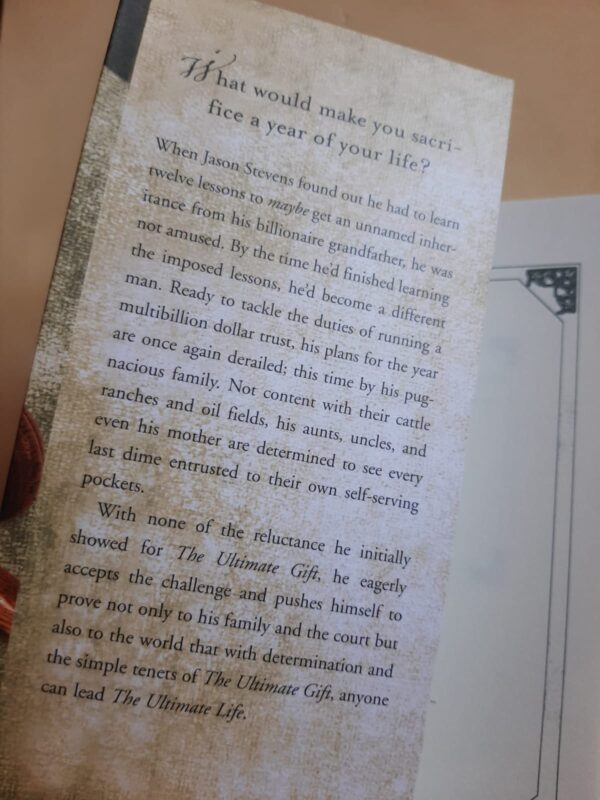 What would make you sacri-
fice a year of your life?
When Jason Stevens found out he had to learn
twelve lessons to maybe get an unnamed inher-
itance from his billionaire grandfather, he was
not amused. By the time he'd finished learning
the imposed lessons, he'd become a different
man. Ready to tackle the duties of running a
multibillion dollar trust, his plans for the year
are once again derailed; this time by his pug-
nacious family. Not content with their cattle
ranches and oil fields, his aunts, uncles, and
even his mother are determined to see every
last dime entrusted to their own self-serving
pockets.
With none of the reluctance he initially
showed for The Ultimate Gift, he eagerly
accepts the challenge and pushes himself to
prove not only to his family and the court but
also to the world that with determination and
the simple tenets of The Ultimate Gift, anyone
can lead The Ultimate Life.